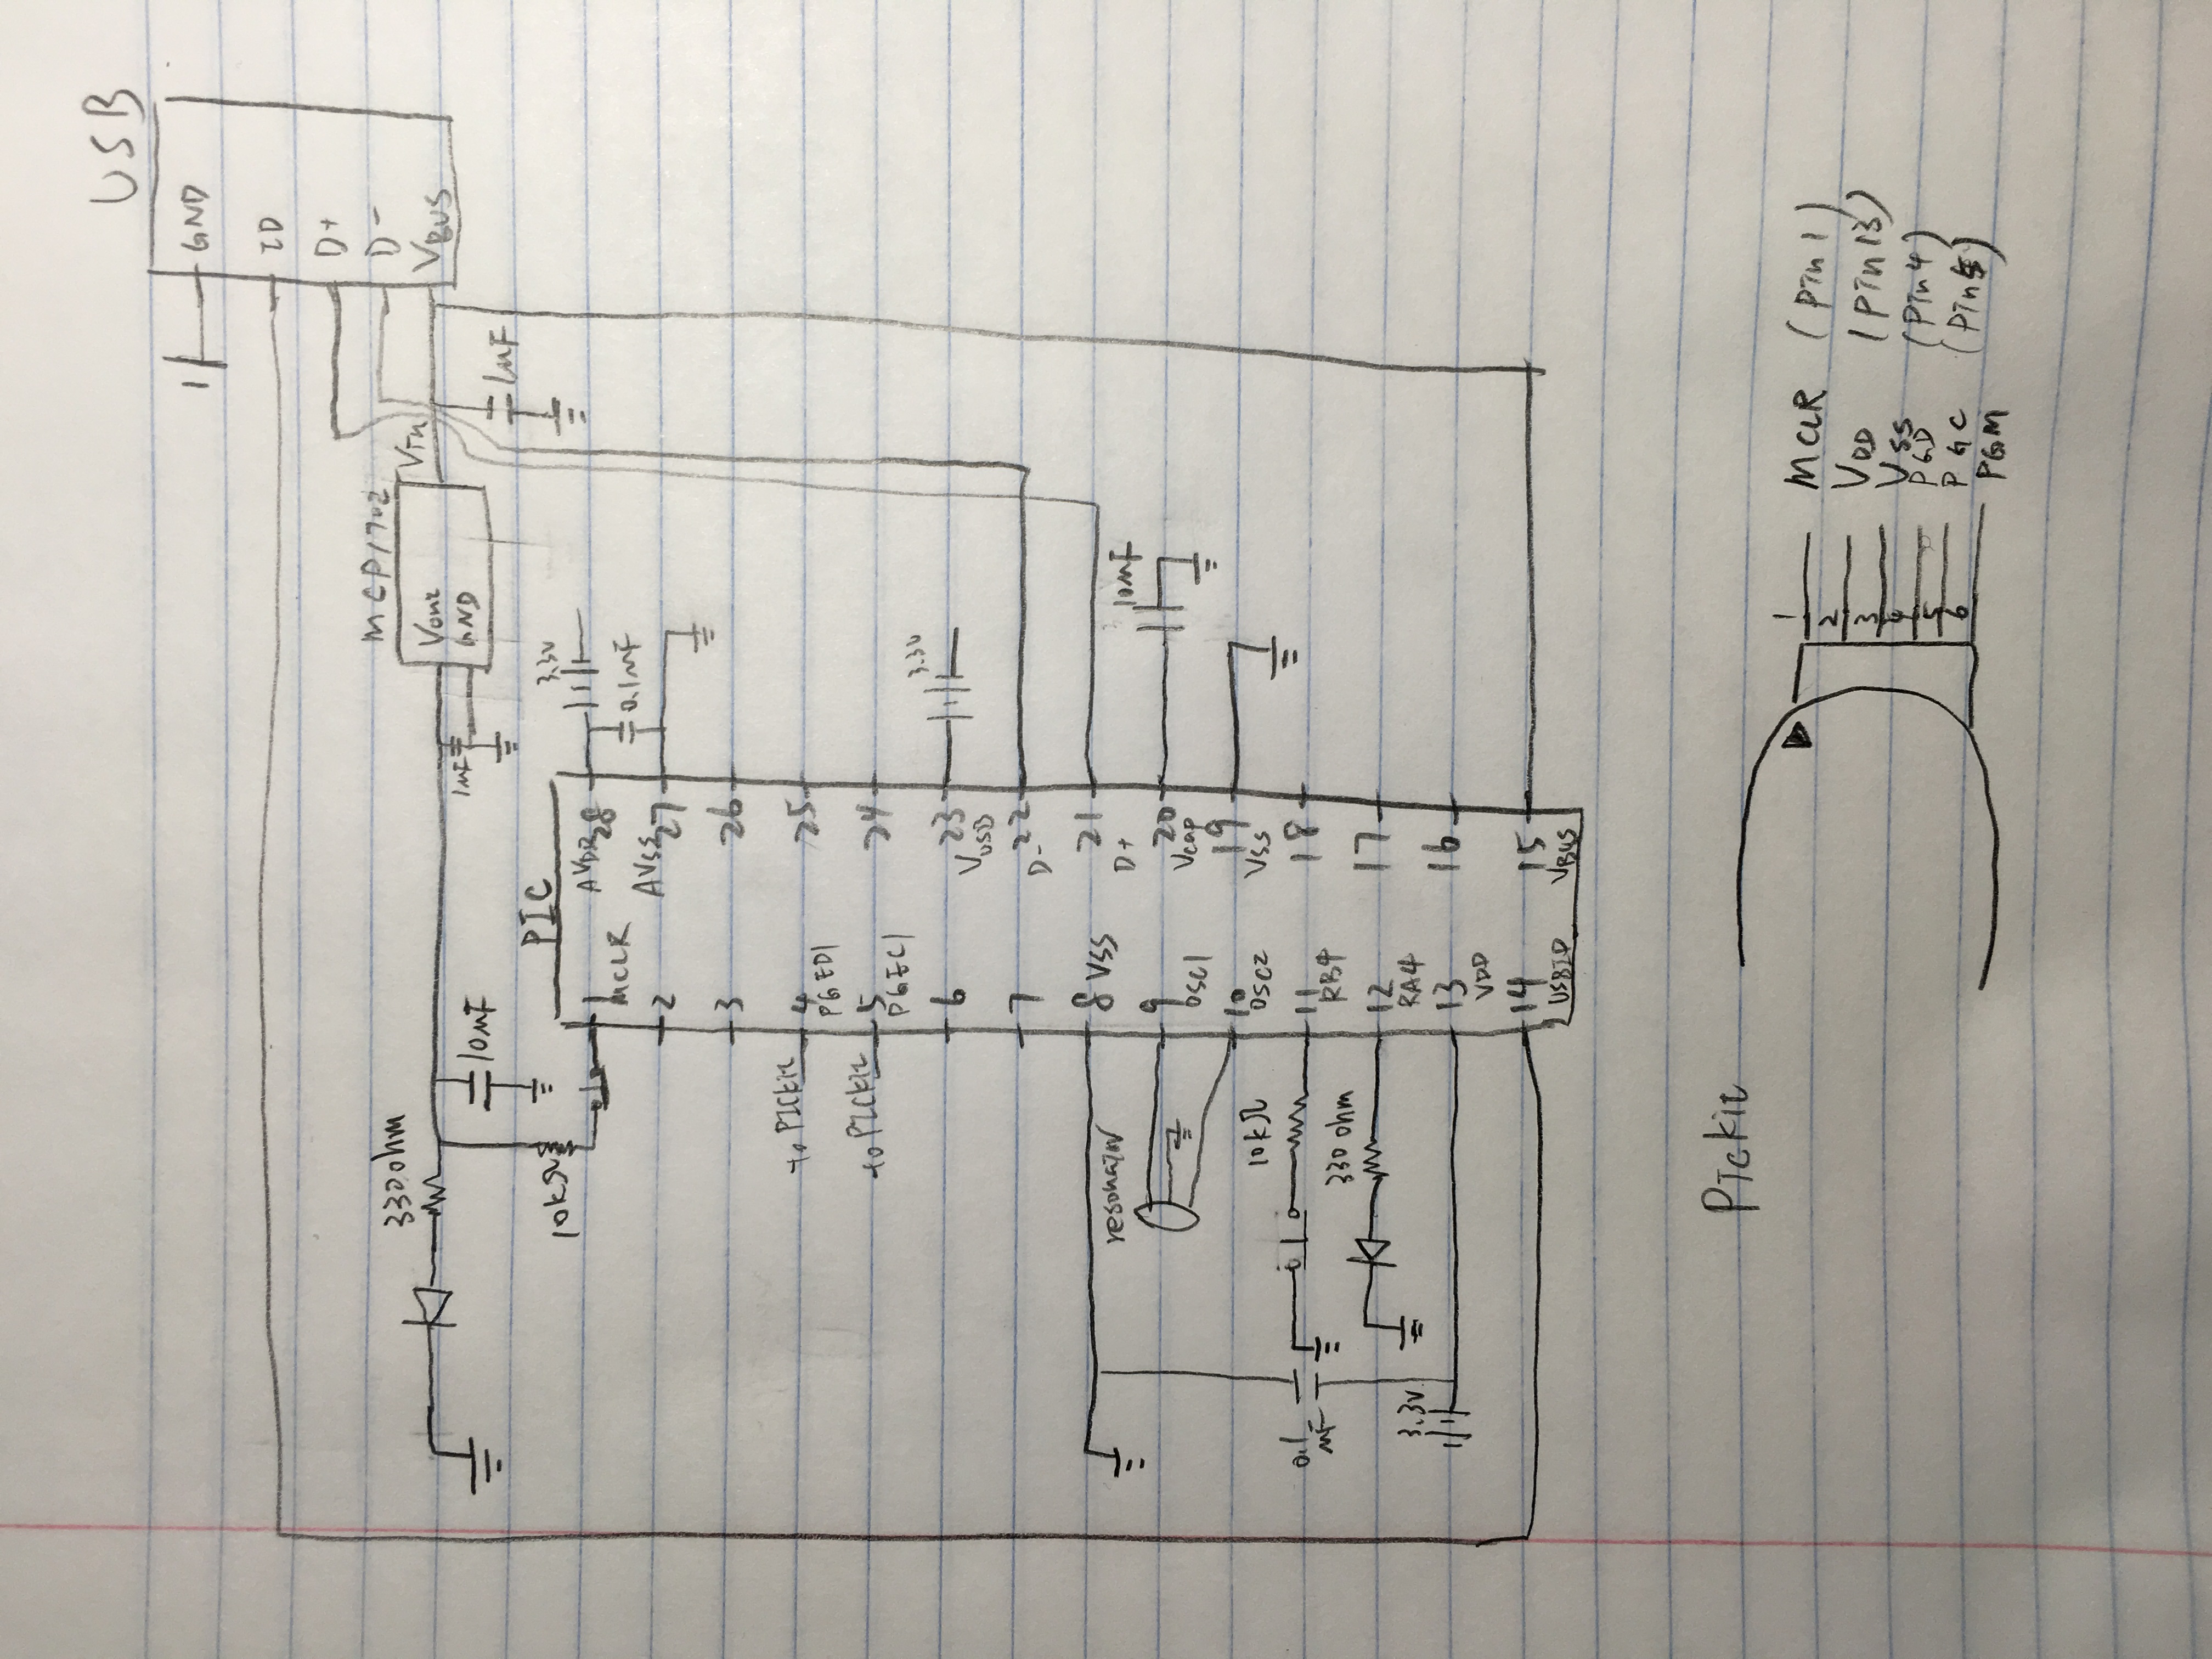 USB
GND
ID
D+
D-
VBUS
MCP1702
Vin
Vout
GND
330 ohm
10uF
1uF
1uF
10kΩ
PIC
1
MCLR
2
3
to PICkit
4
PGED1
to PICkit
5
PGEC1
6
7
8 VSS
resonator
9
OSC1
10
OSC2
10kΩ
11
RB4
0.1
uF
330 ohm
12
RA4
3.3V
13
VDD
14
USBID
AVDD 28
3.3V
0.1uF
AVSS 27
26
25
24
23
VUSB
3.3V
22
D-
21
D+
20
Vcap
10uF
19
VSS
18
17
16
15
VBUS
Pickit
1 MCLR (pin1)
2 VDD (pin13)
3 VSS
4 PGD (pin4)
5 PGC (pin5)
6 PGM